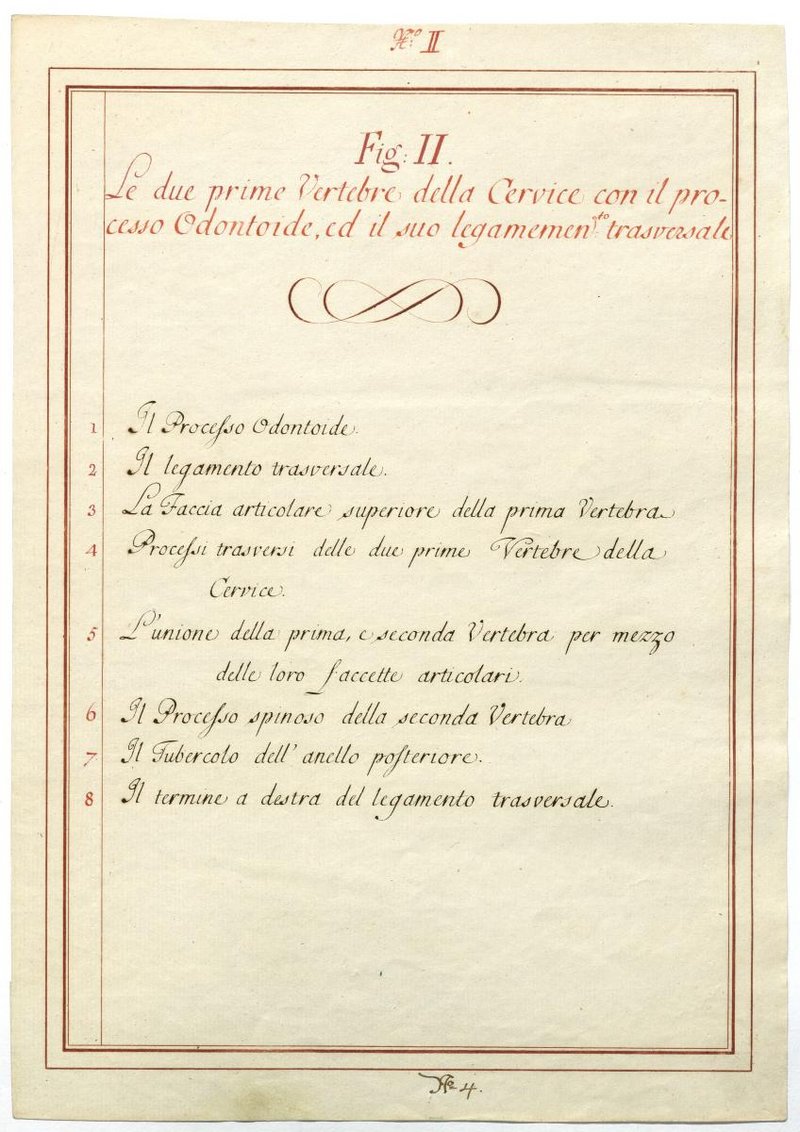 N.º II
Fig: II.
Le due prime Vertebre della Cervice con il pro-
cesso Odontoide, ed il suo legamemen.to trasversale
1 Il Processo Odontoide.
2 Il legamento trasversale.
3 La Faccia articolare superiore della prima Vertebra
4 Processi trasversi delle due prime Vertebre della
Cervice.
5 L'unione della prima, e seconda Vertebra per mezzo
delle loro faccette articolari.
6 Il Processo spinoso della seconda Vertebra
7 Il Tubercolo dell' anello posteriore.
8 Il termine a destra del legamento trasversale.
Nº 4.